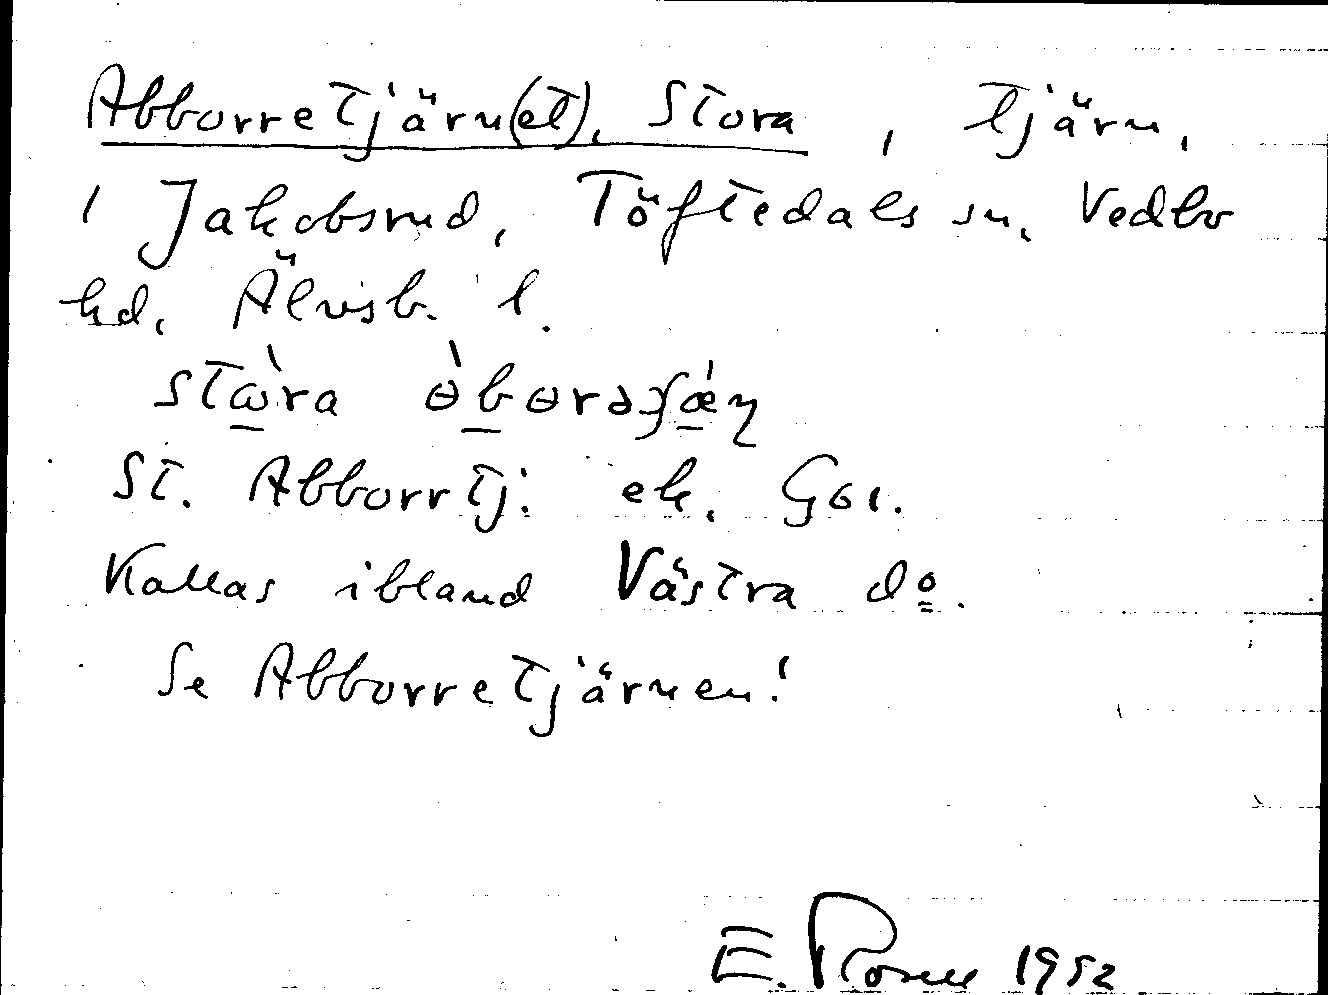 Abborretjärn(et), Stora, tjärn,
i Jakobsrud, Töftedals sn, Vedbo
hd, Älvsb. l.
stὼra ɵ̀bɵrəʃǽɳ
St. Abborrtj. ek. G61.
Kallas ibland Västra do.
Se Abborretjärnen!
E. Rosell 1952